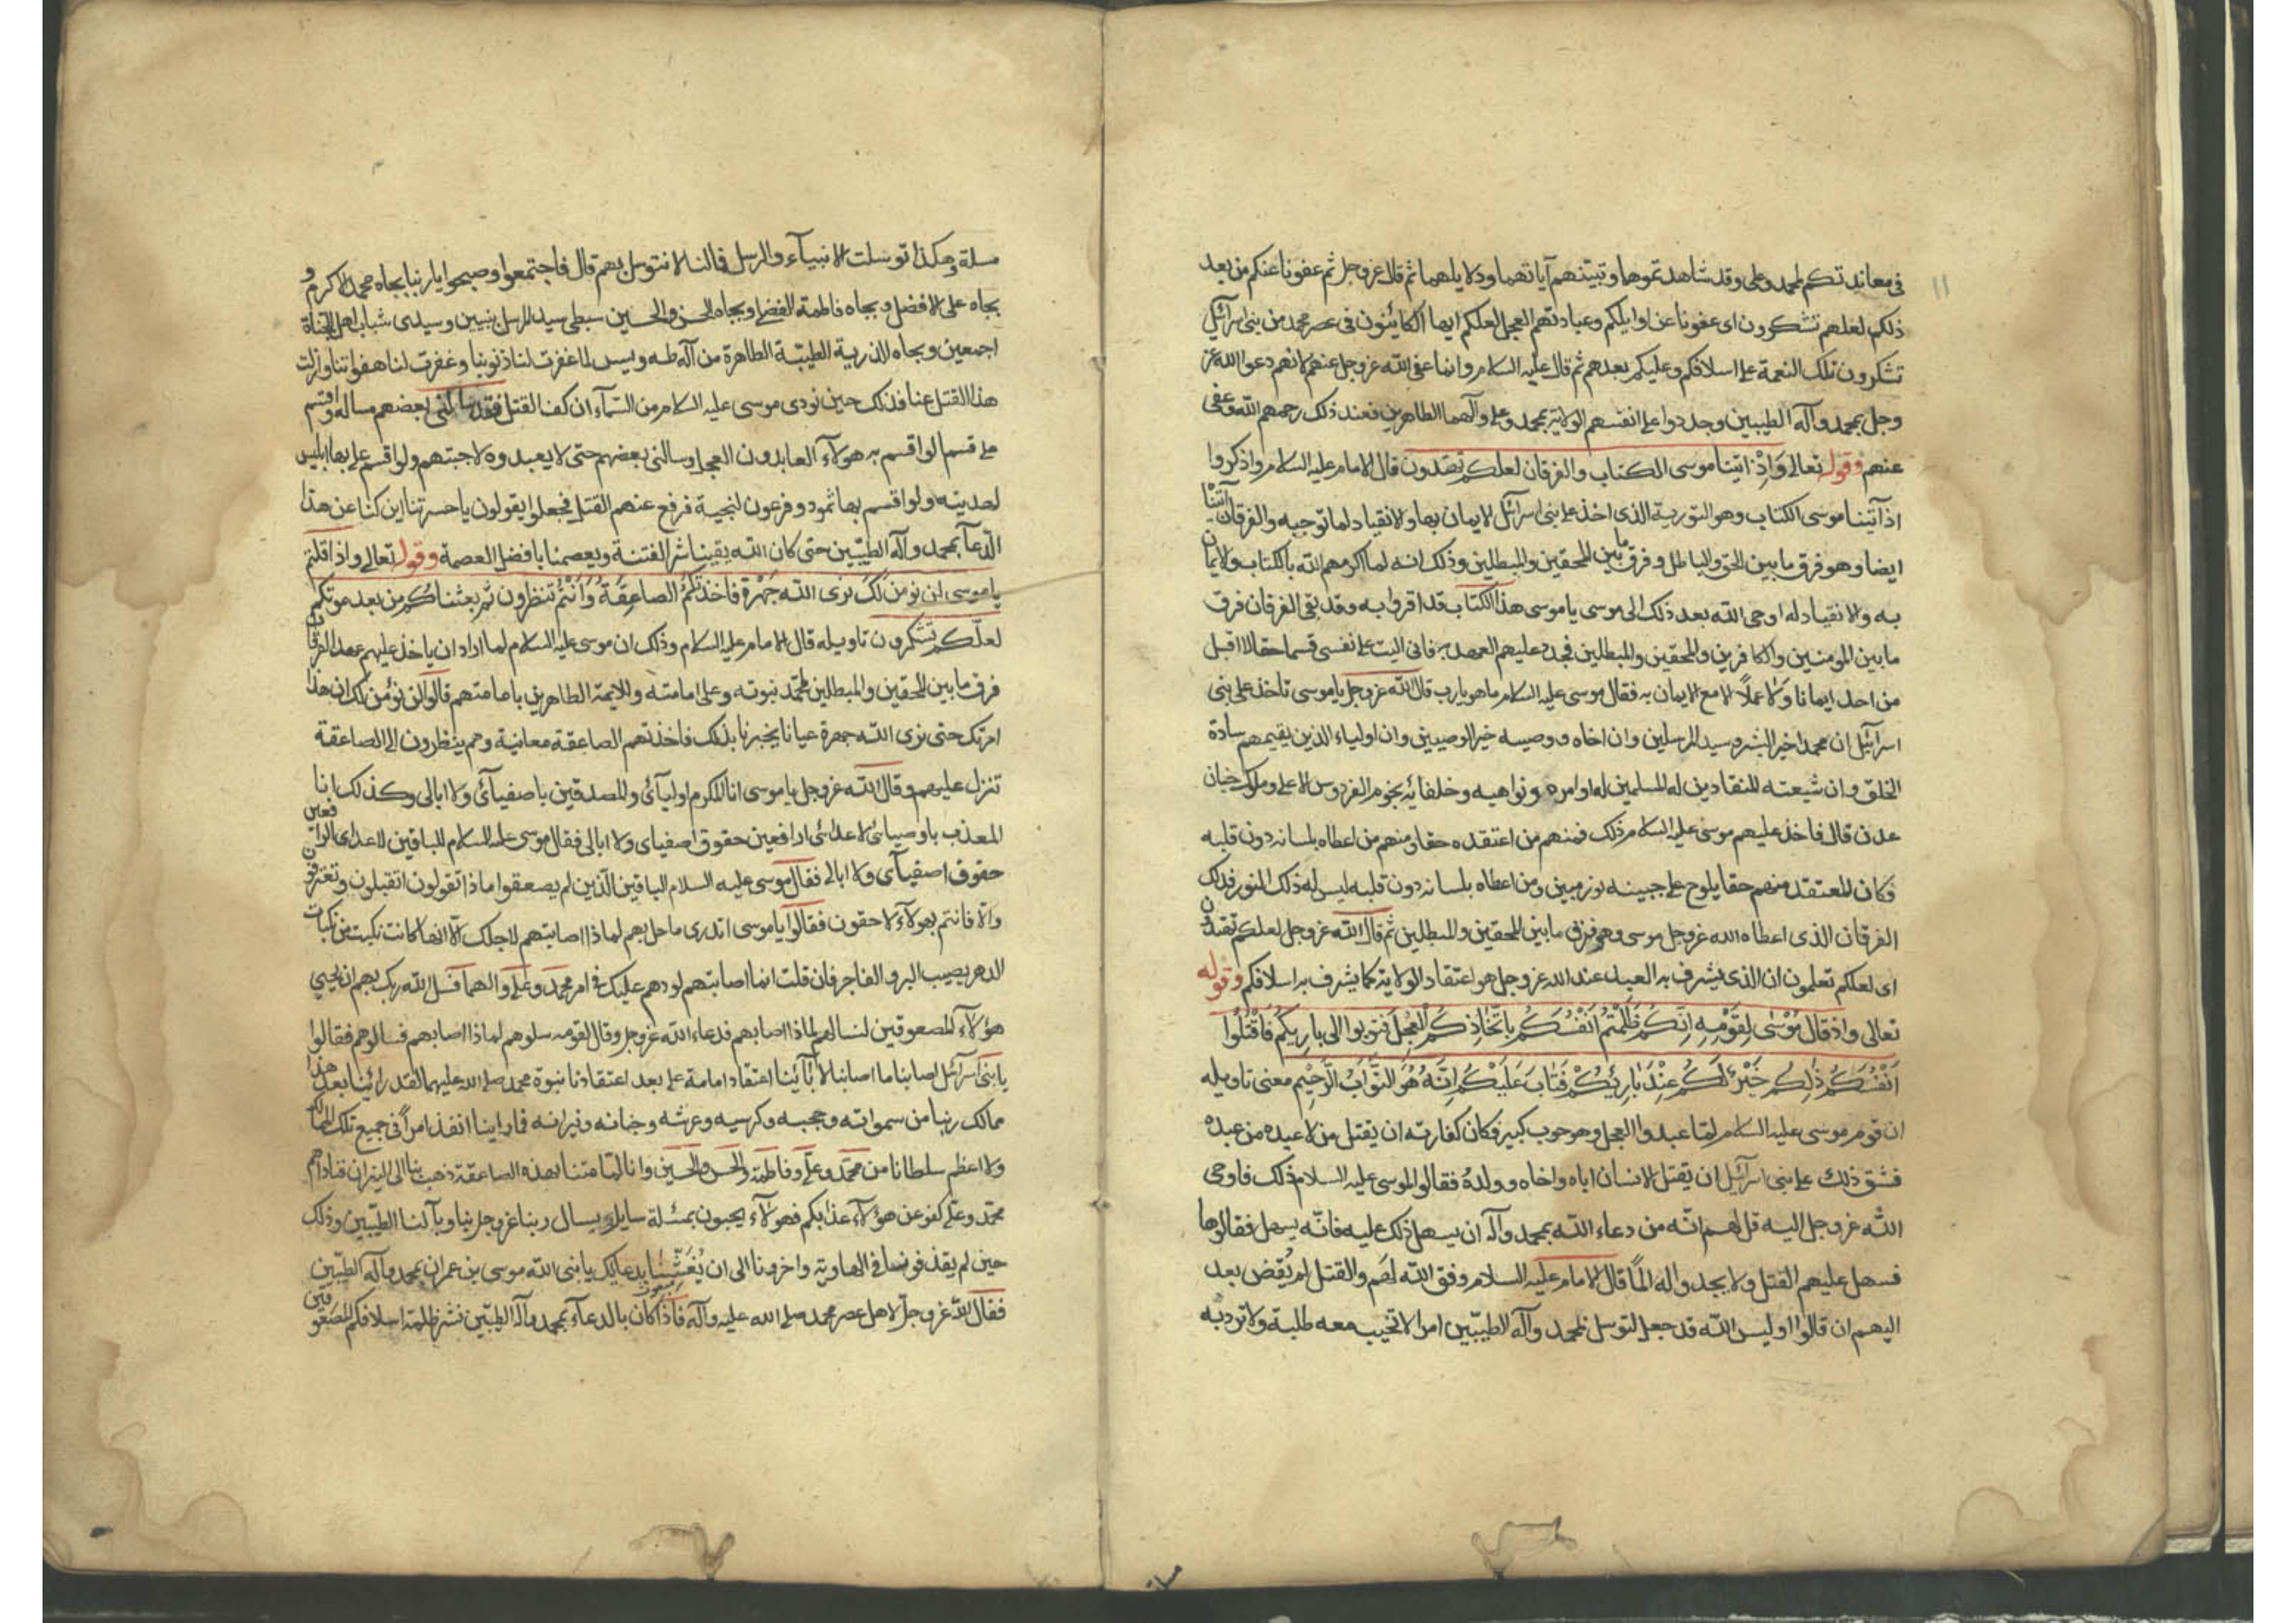 فى معاندتكم لمحمد وعلى وقد شاهدتموها وتبينتهم آياتهما ودلايلهما ثم قال عزوجل ثم عفونا عنكم من بعد
ذلك لعلهم تشكرون اى عفونا عن اوايلكم وعبادتهم العجل لعلكم ايها الكائنون فى عصر محمد من بنى اسرآئيل
تشكرون تلك النعمة على اسلافكم وعليكم بعدهم ثم قال عليه السلام وانما عفى الله عزوجل عنهم لانهم دعوا الله عز
وجل بمحمد وآله الطيبين وجددوا على انفسهم الولاية بمحمد وعلى وآلهما الطاهرين فعند ذلك رحمهم الله وعفى
عنهم وقوله تعالى وَاِذْ اتينا موسى الكتاب والفرقان لعلكم تهتدون قال الامام عليه السلام واذكروا
اذ آتينا موسى الكتاب وهو التورية الذى اخذ على بنى اسرآئل الايمان بها والانقياد لما توجبه والفرقان آتَيْنَا
ايضا وهو فرق ما بين الحق والباطل وفرق ما بين المحقين والمبطلين وذلك انه لما اكرمهم الله بالكتاب والايمان
به والانقياد له اوحى الله بعد ذلك الى موسى يا موسى هذا الكتاب قد اقروا به وقد بقى الفرقان فرق
ما بين المؤمنين والكافرين والمحقين والمبطلين فجدد عليهم العهد به فانى اليت على نفسى قسما حقا لا اقبل
من احد ايمانا ولا عملاً الا مع الايمان به فقال موسى عليه السلام ما هو يا رب قال الله عزوجل يا موسى تاخذ على بنى
اسرآئيل ان محمدا خير البشر وسيد المرسلين وان اخاه ووصيه خير الوصيين وان اولياء الذين يقيمهم سادة
الخلق وان شيعته المنقادين له المسلمين له اوامره ونواهيه وخلفائه نجوم الفردوس الاعلى وملوك جنان
عدن قال فاخذ عليهم موسى عليه السلام ذلك فمنهم من اعتقده حقا ومنهم من اعطاه بلسانه دون قلبه
فكان المعتقد منهم حقا يلوح على جبينه نور مبين ومن اعطاه بلسانه دون قلبه ليس له ذلك النور فذلك
الفرقان الذى اعطاه الله عزوجل موسى وهو فرق ما بين المحقين والمبطلين ثم قال الله عزوجل لعلكم تهتدون
اى لعلكم تعلمون ان الذى يشرف به العبد عند الله عزوجل هو اعتقاد الولاية كما يشرف به اسلافكم وقوله
تعالى واذ قال مُوْسٰى لِقَوْمِهِ اِنَّكُمْ ظَلَمْتُمْ اَنْفُسَكُمْ بِاتِّخَاذِكُمُ الْعِجْلَ فتوبوا الى بارِيكُمْ فَاقْتُلُوا
اَنْفُسَكُمْ ذٰلِكُمْ خَيْرٌ لَكُمْ عِنْدَ بَارِئِكُمْ فَتَابَ عَلَيْكُمْ اِنَّهُ هُوَ التَّوَّابُ الرَّحِيْم معنى تاويله
ان قوم موسى عليه السلام لمّا عبدوا العجل وهو حوب كبير فكان كفارته ان يقتل من لا عبده من عبده
فشق ذلك على بنى اسرآئيل ان يقتل الانسان اباه واخاه وولدهُ فقالوا لموسى عليه السلام ذلك فاوحى
الله عزوجل اليه قل لهم انّه من دعاء الله بمحمد وآله ان يسهل ذلك عليه فانّه يسهل فقالوها
فسهل عليهم القتل ولا يجد واله المًا قال الامام عليه السلام وفق الله لهم والقتل لم يُقض بعد
اليهم ان قالوا اوليس الله قد جعل التوسل بمحمد وآله الطيبّين امرا لا تخيب معه طلبة ولا ترد به
مسلة وهكذا توسلت الانبيآء والرسل فمالنا لا نتوسل بهم قال فاجتمعوا وصبحوا يا ربنا بجاه محمد الاكرم و
بجاه على الافضل وبجاه فاطمة الفضلى وبجاه الحسن والحسين سبطى سيد المرسل نبيين وسيدى شباب اهل الجنة
اجمعين وبجاه الذرية الطيبّة الطاهرة من آل طه ويس لما غفرت لنا ذنوبنا وغفرت لنا هفواتنا وازلت
هذا القتل عنا فذلك حين نودى موسى عليه السلام من السّمآء ان كف القتل فقد سالنى بعضهم مسالة واقسم
على قسم لو اقسم به هولآء العابدون العجل وسالنى بعضهم حتى لا يعبدوه لاجبتهم ولو اقسم على بها ابليس
لهديته ولو اقسم بها ثمود وفرعون لنجية فرفع عنهم القتل فجعلوا يقولون يا حسرتنا اين كنا عن هذا
الدّعآ بمحمد وآله الطيّبين حتى كان الله يقينا شر الفتنة ويعصمنا بافضل العصمة وقوله تعالى واذ قلتم
يا موسى لن نومن لكَ نرى الله جَهْرة فاخذتكُمُ الصاعِقَةُ وَاَنْتُمْ تنظرون ثم بعثناكم من بعد موتكم
لعلّكم تشكرون تاويله قال الامام عليه السلام وذلك ان موسى عليه السلام لما اراد ان ياخذ عليهم عهد الفرقان
فرق ما بين المحقين والمبطلين لمحمّد نبوته وعلى امامته والايمة الطاهرين بامامتهم قالوا لن نؤمن لك ان هذا
امرتك حتى نرى الله جهرة عيانا يخبرنا بذلك فاخذتهم الصاعقة معاينة وهم ينظرون الى الصاعقة
تنزل عليهم وقال الله عزوجل يا موسى انا المكرم اوليآئى والمصدقين باصفيآئى ولا ابالى وكذلك انا
المعذب باوصيائى لاعدائى الدافعين حقوق اصفياى ولا ابالى فقال موسى عليه السلام للباقين لاعداى الرافعين
حقوق اصفيآى ولا ابالى فقال موسى عليه السلام الباقين الّذين لم يصعقوا ماذا تقولون اتقبلون وتعترفون
والا فانتم بهولآء لاحقون فقالوا يا موسى اتدرى ماحل بهم لماذا اصابتهم لاجلك الّا انها كانت نكبت من نكبات
الدهر يصيب البر والفاجر فان قلت انما اصابتهم لودهم عليك فى امر محمد وعلى والهما فسل الله ربك بهم ان يحيى
هؤلآء المصعوقين لنسالهم لماذا اصابهم فدعاء الله عزوجل وقال لقومه سلوهم لماذا اصابهم فسالوهم فقالوا
يا بنى اسرآئيل اصابنا ما اصابنا لابآئينا اعتقاد امامة على بعد اعتقادنا نبوة محمد صلى الله عليهما لقد رائينا بعد هذا
ممالك ربنا من سمواته وحجبه وكرسيه وعرشه وجنانه ونيرانه فما راينا انفذ امراً فى جميع تلك الممالك
ولا اعظم سلطانا من محمّد وعلى وفاطمة والحسن والحسين وانا لما متنا بهذه الصاعقة ذهب بنا الى النيران فناداهم
محمّد وعلى كفو عن هؤلآء عذابكم فهولآء يحيون بمسئلة سايل يسال ربنا عزوجل بنا وبآلنا الطيّبين وذلك
حين لم يقذفونا فى الهاوية واخرونا الى ان بعثنا بدعائك يا بنى الله موسى بن عمران بمحمد وآله الطيّبين
فقال الله عزوجلّ لاهل عصر محمد صلى الله عليه وآله فاذا كان بالدعآء بمحمد وآله الطيّبين نشر ظلمة اسلافكم المصعوقين